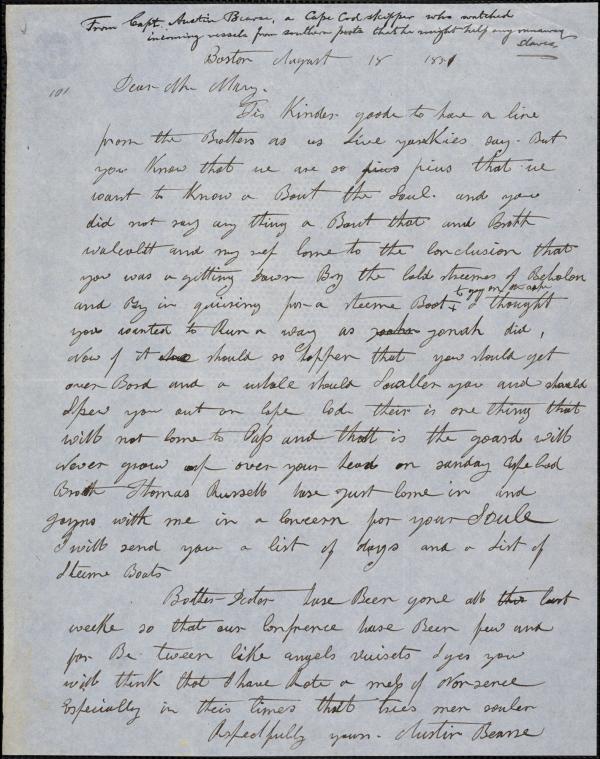 From Capt. Austin Bearse, a Cape Cod skipper who watched
incoming vessels from southern ports that he might help any runaway
slaves
101
Boston August 18 1851
Dear Mr Mary.
Tis Kinder goode to have a line
from the Brothers as us Live yankies say. But
you Know that we are so pius that we
want to Know a Bout the Soul. and you
did not say any thing a Bout that and Broth
walcoldt and my sef Come to the Conclusion that
you was a gitting Down By the Cold streemes of Babalon
and By in quiering for a steeme Boot + I thought
you wanted to Run a way as jonah did,
Now if it should so hopper that you should get
over Bord and a whale should Swaller you and should
Spew you out on Cape Code their is one thing that
will not Come to Pass and thatt is the goard will
Never grow up over your head on sanday Cape Cod
Broth Thomas Russell hase Just Come in and
joyns with me in a Concern for your Soule
I will send you a list of days and a List of
Steeme Boats
Bother Doctor hase Been gone all last
weeke so that our Confrence hase Been few and
far Be tween like angels visets I ges you
will think that I have Rote a mess of Nonsence
Especially in theis times thatt tries men souler
Respectfully yours. Austin Bearse